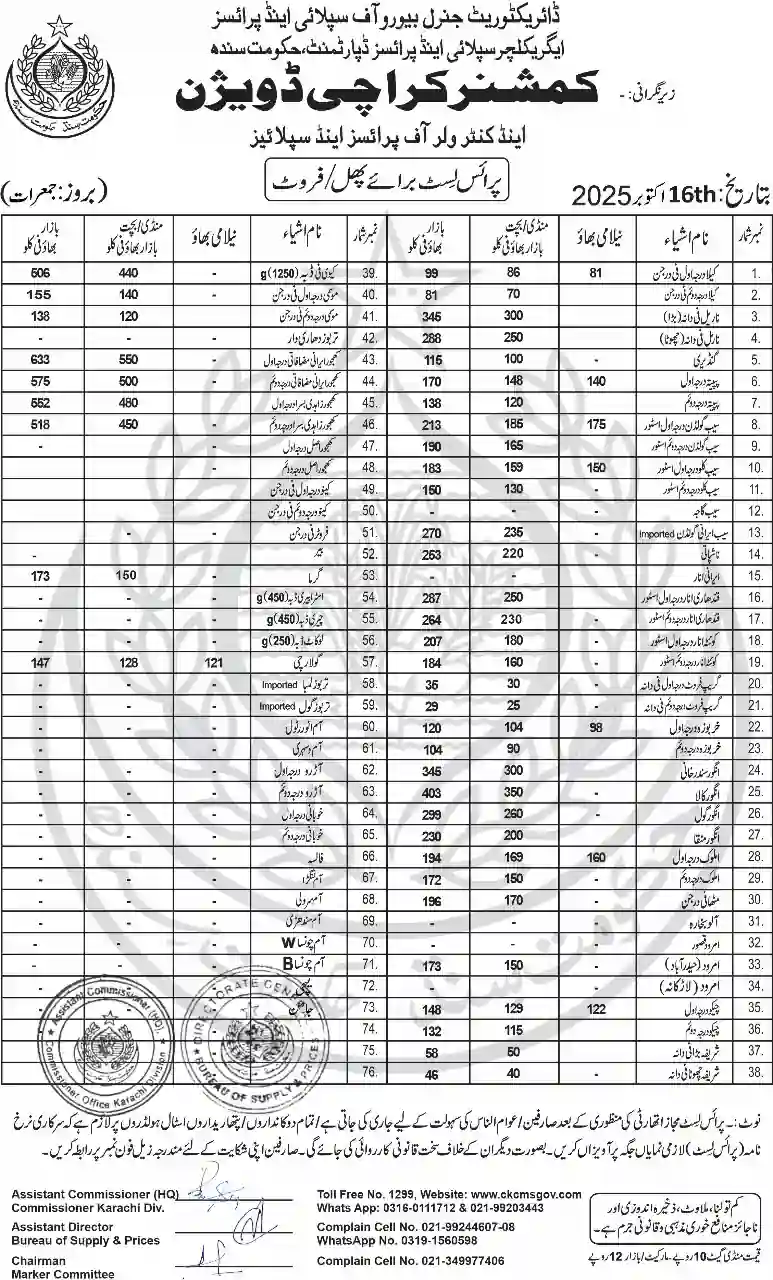 ڈائریکٹوریٹ جنرل بیورو آف سپلائی اینڈ پرائسز
ایگریکلچر سپلائی اینڈ پرائسز ڈپارٹمنٹ، حکومت سندھ
زیر نگرانی:- کمشنر کراچی ڈویژن
اینڈ کنٹرولر آف پرائسز اینڈ سپلائیز
بتاریخ: 16th اکتوبر 2025 پرائس لسٹ برائے پھل/فروٹ (بروز: جمعرات)
نمبرشمار نام اشیاء نیلامی بھاؤ منڈی/بچت بازار بھاؤ فی کلو بازار بھاؤ فی کلو نمبرشمار نام اشیاء نیلامی بھاؤ منڈی/بچت بازار بھاؤ فی کلو بازار بھاؤ فی کلو
1. کیلا درجہ اول فی درجن 81 86 99 39. کیوی فی ڈبہ (1250)g - 440 506
2. کیلا درجہ دوئم فی درجن 70 81 40. موسمی درجہ اول فی درجن - 140 155
3. ناریل فی دانہ (بڑا) 300 345 41. موسمی درجہ دوئم فی درجن - 120 138
4. ناریل فی دانہ (چھوٹا) 250 288 42. تربوز دھاری دار - - -
5. گنڈیری - 100 115 43. کھجور ایرانی مضافاتی درجہ اول - 550 633
6. پپیتہ درجہ اول 140 148 170 44. کھجور ایرانی مضافاتی درجہ دوئم - 500 575
7. پپیتہ درجہ دوئم - 120 138 45. کھجور زاہدی بسرا درجہ اول - 480 552
8. سیب گولڈن درجہ اول اسٹور 175 185 213 46. کھجور زاہدی بسرا درجہ دوئم - 450 518
9. سیب گولڈن درجہ دوئم اسٹور - 165 190 47. کھجور اصل درجہ اول -
10. سیب کلو درجہ اول اسٹور 150 159 183 48. کھجور اصل درجہ دوئم -
11. سیب کلو درجہ دوئم اسٹور - 130 150 49. کینو درجہ اول فی درجن -
12. سیب گاچہ - - - 50. کینو درجہ دوئم فی درجن -
13. سیب ایرانی گولڈن Imported - 235 270 51. فروٹر فی درجن - -
14. ناشپاتی - 220 253 52. بیر - -
15. ایرانی انار - - 53. گرما - 150 173
16. قندھاری انار درجہ اول اسٹور 250 287 54. اسٹرابیری ڈبہ (450)g - - -
17. قندھاری انار درجہ دوئم اسٹور - 230 264 55. چیری ڈبہ (450)g - - -
18. کوئٹہ انار درجہ اول اسٹور - 180 207 56. لوکاٹ ڈبہ (250)g - - -
19. کوئٹہ انار درجہ دوئم اسٹور - 160 184 57. گولارچی 121 128 147
20. گریپ فروٹ درجہ اول فی دانہ - 30 35 58. تربوز لمبا Imported - - -
21. گریپ فروٹ درجہ دوئم فی دانہ - 25 29 59. تربوز گول Imported - - -
22. خربوزہ درجہ اول 98 104 120 60. آم انور رٹول - - -
23. خربوزہ درجہ دوئم 90 104 61. آم دسہری - - -
24. انگور سندرخانی - 300 345 62. آڑو درجہ اول - - -
25. انگور کالا - 350 403 63. آڑو درجہ دوئم - - -
26. انگور گول - 260 299 64. خوبانی درجہ اول - - -
27. انگور منقا 200 230 65. خوبانی درجہ دوئم - - -
28. املوک درجہ اول 160 169 194 66. فالسہ - - -
29. املوک درجہ دوئم - 150 172 67. آم لنگڑا - - -
30. مٹھا فی درجن - 170 196 68. آم سرولی - - -
31. آلو بخارہ - - - 69. آم سندھڑی - - -
32. امرود قصور - - - 70. آم چونسا W - - -
33. امرود (حیدرآباد) - 150 173 71. آم چونسا B - - -
34. امرود (لاڑکانہ) - - - 72.
35. چیکو درجہ اول 122 129 148 73. جامن
36. چیکو درجہ دوئم 115 132 74.
37. شریفہ بڑا فی دانہ 50 58 75.
38. شریفہ چھوٹا فی دانہ - 40 46 76.
Assistant Commissioner (HQ)
Commissioner Office Karachi Division
DIRECTORATE GENERAL
BUREAU OF SUPPLY & PRICES
نوٹ:۔ پرائس لسٹ مجاز اتھارٹی کی منظوری کے بعد صارفین/عوام الناس کی سہولت کے لیے جاری کی جاتی ہے/تمام دوکانداروں/پتھاریداروں/اسٹال ہولڈروں پر لازم ہے کہ سرکاری نرخ
نامہ (پرائس لسٹ) لازمی نمایاں جگہ پر آویزاں کریں۔ بصورت دیگر ان کے خلاف سخت قانونی کارروائی کی جائے گی۔ صارفین اپنی شکایت کے لئے مندرجہ زیل فون نمبر پر رابطہ کریں۔
Assistant Commissioner (HQ)
Commissioner Karachi Div.
Assistant Director
Bureau of Supply & Prices
Chairman
Marker Committee
Toll Free No. 1299, Website: www.ckcmsgov.com
Whats App: 0316-0111712 & 021-99203443
Complain Cell No. 021-99244607-08
WhatsApp No. 0319-1560598
Complain Cell No. 021-349977406
کم تولنا، ملاوٹ، ذخیرہ اندوزی اور
ناجائز منافع خوری مذہبی و قانونی جرم ہے۔
قیمت منڈی گیٹ 10 روپے۔ مارکیٹ/بازار 12 روپے